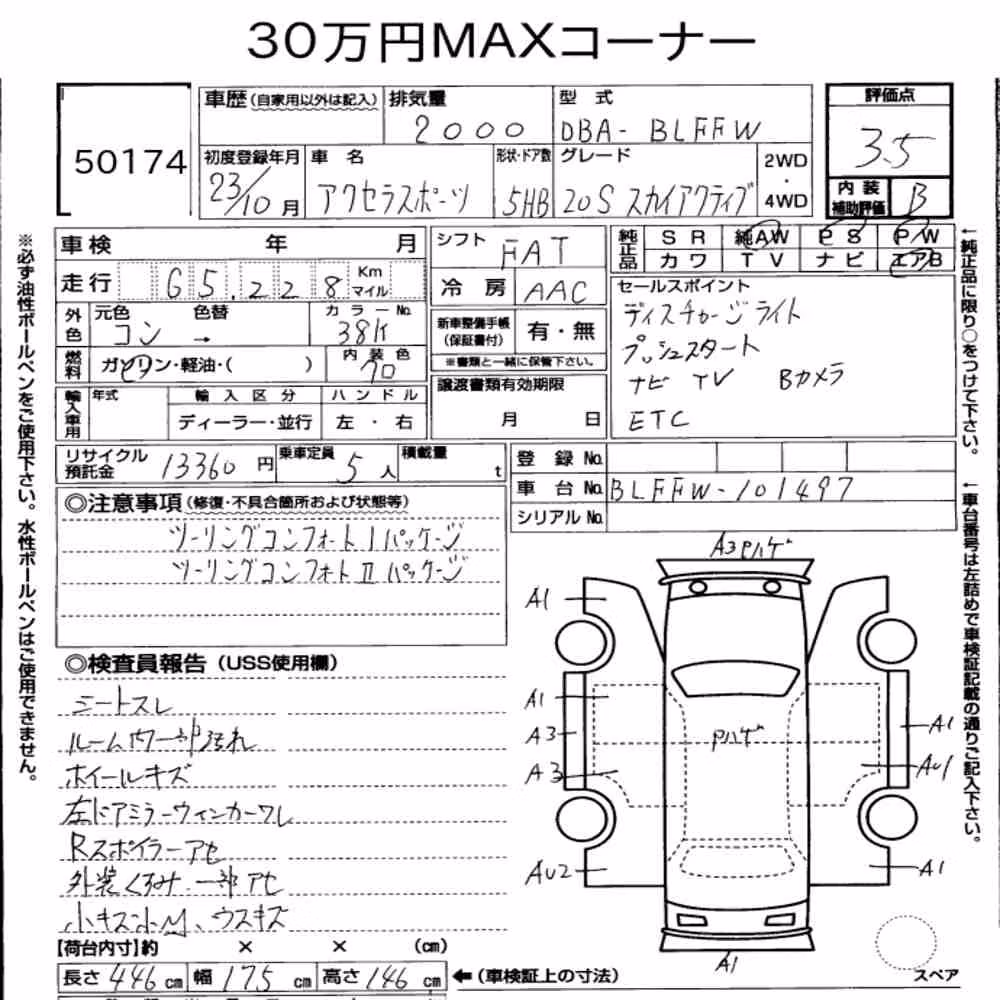 30万円MAXコーナー
50174
車歴(自家用以外は記入)
排気量
2000
型 式
DBA- BLFFW
評価点
3.5
初度登録年月
23/10月
車 名
アクセラスポーツ
形状・ドア数
5HB
グレード
20S スカイアクティブ
2WD
・
4WD
内装
補助評価
B
車検 年 月
シフト
FAT
純正品
SR 純AW PS P/W
カワ TV ナビ エアB
走行 65,228 Km マイル
冷房
AAC
セールスポイント
ディスチャージライト
プッシュスタート
ナビ TV Bカメラ
ETC
外色
元色
コン
→
色替
カラーNo.
38K
新車整備手帳
(保証書付)
有・無
※書類と一緒に保管下さい。
燃料
ガソリン・軽油・( )
内装色
クロ
譲渡書類有効期限
月 日
輸入車用
年式
輸入区分
ディーラー・並行
ハンドル
左・右
リサイクル
預託金
13360円
乗車定員
5人
積載量
t
登録No.
車台No. BLFFW-101497
シリアルNo.
◎注意事項(修復・不具合箇所および状態等)
ツーリングコンフォートIパッケージ
ツーリングコンフォートⅡパッケージ
◎検査員報告(USS使用欄)
シートスレ
ルーム内一部汚れ
ホイールキズ
左ドアミラーウィンカーワレ
Rスポイラーアセ
外装くすみ.一部アセ
小キズ小凹、ウスキズ
【荷台内寸】約 × × (cm)
長さ446cm 幅175cm 高さ146cm ←(車検証上の寸法)
A3 Pハゲ
A1
A1
A3
A3
AU2
Pハゲ
A1
AU1
A1
A1
スペア
※必ず油性ボールペンをご使用下さい。水性ボールペンはご使用できません。
←純正品に限り○をつけて下さい。
←車台番号は左詰めで車検証記載の通りご記入下さい。